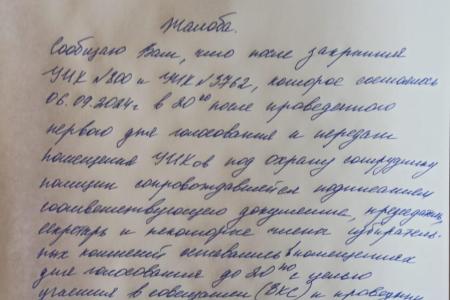 Жалоба.
Сообщаю Вам, что после закрытия
УИК №200 и УИК №3762, которое состоялось
06.09.2024г в 20⁰⁰ после проведенного
первого дня голосования и передачи
помещения УИКов под охрану сотруднику
полиции сопровождавшейся подписанием
соответствующего документа, председатель,
секретарь и некоторые члены избиратель-
ных комиссий оставались в помещениях
для голосования до 20⁴⁰ с целью
участия в совещании (ВКС) и проводили